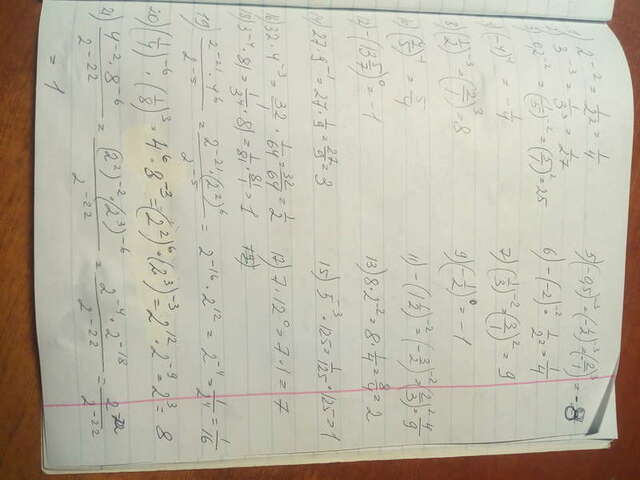 1) 2⁻² = 1/2² = 1/4
2) 3⁻³ = 1/3³ = 1/27
3) 0,2⁻² = (1/5)⁻² = (5/1)² = 25
4) (-4)⁻¹ = -1/4
5) (-0,5)⁻³ = (-1/2)⁻³ = (-2/1)³ = -8
6) -(-2)⁻² = 1/2² = 1/4
7) (1/3)⁻² = (3/1)² = 9
8) (1/2)⁻³ = (2/1)³ = 8
9) (-1/2)⁰ = -1
10) (4/5)⁻¹ = 5/4
11) -(1 1/2)⁻² = (-3/2)⁻² = (2/3)² = 4/9
12) -(13 5/7)⁰ = -1
13) 8·2⁻² = 8·1/4 = 8/4 = 2
14) 27·9⁻¹ = 27·1/9 = 27/9 = 3
15) 5⁻³·125 = 1/125·125 = 1
16) 32·4⁻³ = 32/1·1/64 = 32/64 = 1/2
17) 7·12⁰ = 7·1 = 7
18) 3⁻⁴·81 = 1/3⁴·81 = 1/81·81/1 = 1
19) 2⁻²¹·4⁶ / 2⁻⁵ = 2⁻²¹·(2²)⁶ / 2⁻⁵ = 2⁻¹⁶·2¹² = 2⁻⁴ = 1/2⁴ = 1/16
20) (1/4)⁻⁶·(1/8)³ = 4⁶·8⁻³ = (2²)⁶·(2³)⁻³ = 2¹²·2⁻⁹ = 2³ = 8
21) 4⁻²·8⁻⁶ / 2⁻²² = (2²)⁻²·(2³)⁻⁶ / 2⁻²² = 2⁻⁴·2⁻¹⁸ / 2⁻²² = 2⁻²² / 2⁻²²
= 1